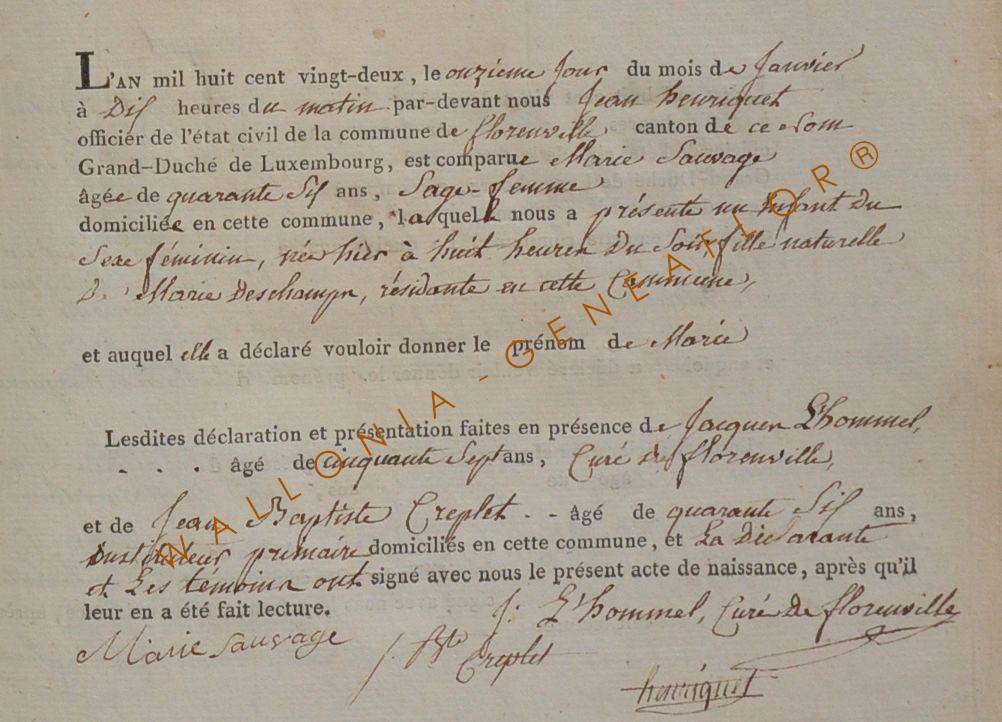 L'AN mil huit cent vingt-deux, le onzieme jour du mois de Janvier
à Dix heures du matin par-devant nous Jean henriquet
officier de l'état civil de la commune de florenville canton de ce nom
Grand-Duché de Luxembourg, est comparue Marie Sauvage
âgée de quarante Six ans, Sage-femme
domiciliée en cette commune, laquelle nous a présenté un Enfant du
Sexe féminin, née hier à huit heures du Soir, fille naturelle
De Marie Deschamps, résidante en cette Commune,
et auquel elle a déclaré vouloir donner le prénom de Marie
Lesdites déclaration et présentation faites en présence de Jacques L'hommel,
. . . âgé de cinquante Sept ans, Curé de florenville,
et de Jean Baptiste Creplet - - âgé de quarante Six ans,
instituteur primaire domiciliés en cette commune, et La Déclarante
et Les témoins ont signé avec nous le présent acte de naissance, après qu'il
leur en a été fait lecture.
J: L'hommel, Curé De florenville
Marie Sauvage
J. Bte Creplet
henriquet
WALLONIA-GENEAFLOR®